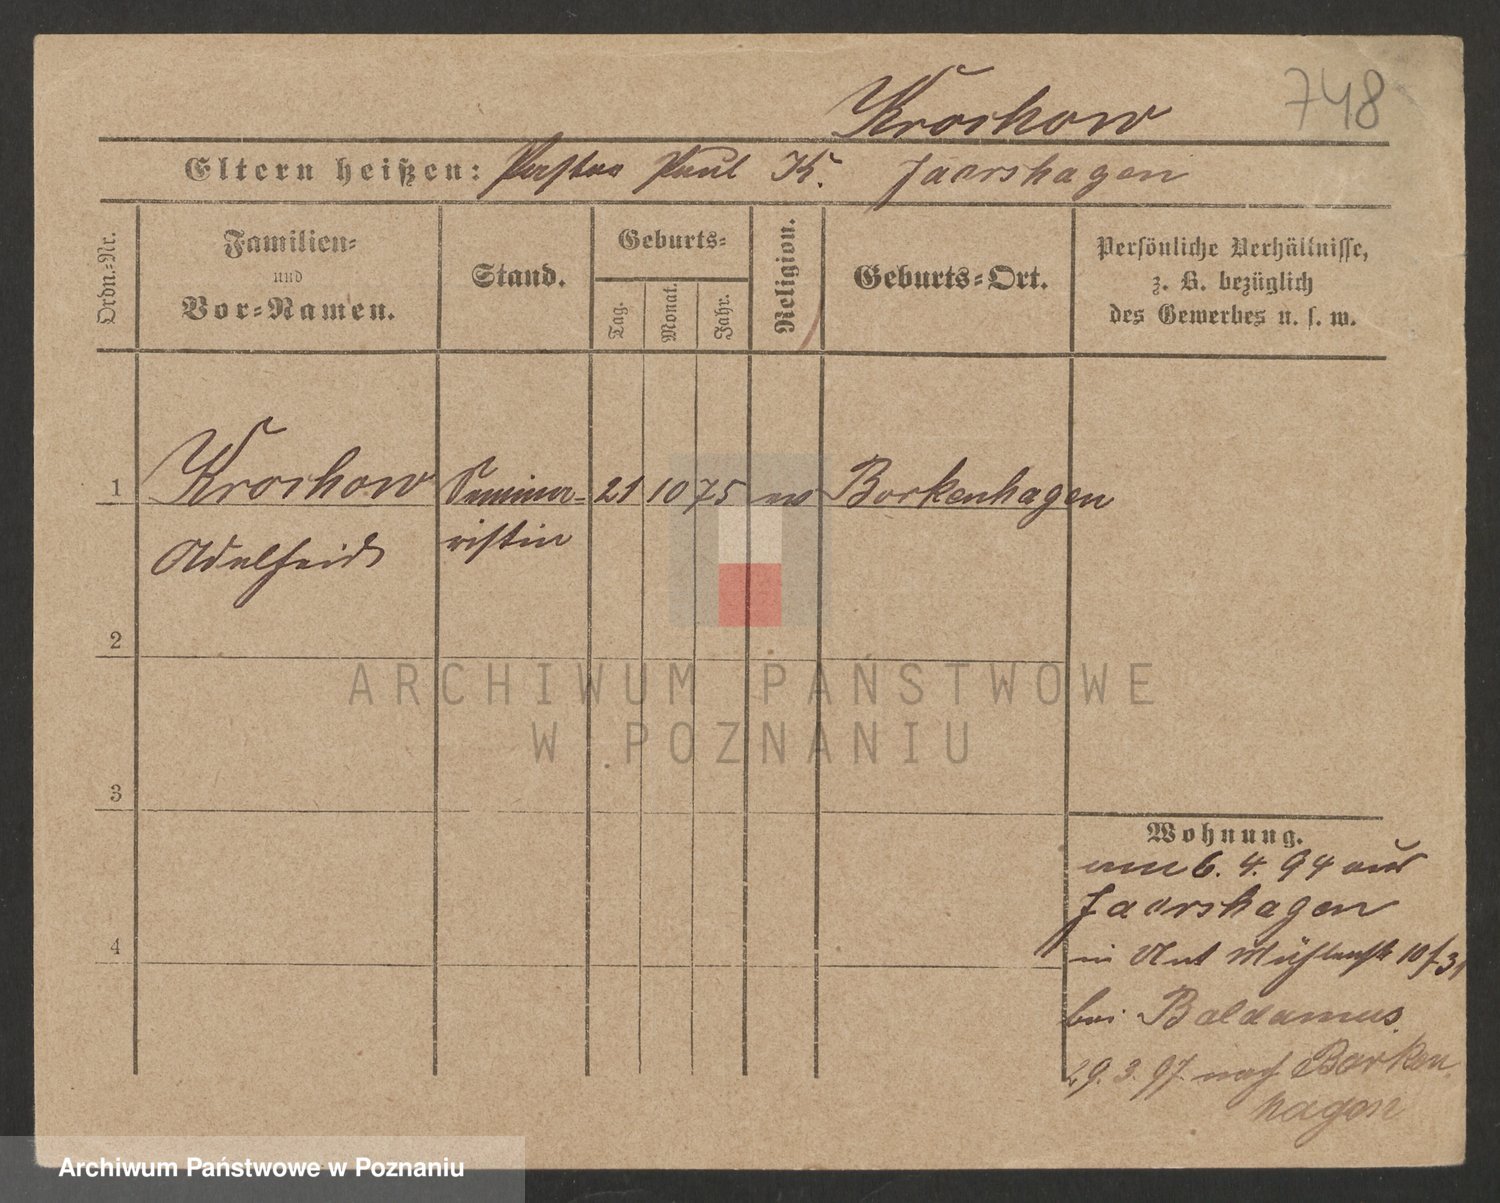 Krockow
748
Eltern heißen: Pastor Paul K. Jaershagen
Ordn.-Nr.
Familien-
und
Vor-Namen.
Stand.
Geburts-
Tag.
Monat.
Jahr.
Religion.
Geburts-Ort.
Persönliche Verhältnisse,
z. B. bezüglich
des Gewerbes u. s. w.
1 Krockow Semina- 21 10 75 ev Borkenhagen
Adelheid ristin
2
ARCHIWUM PAŃSTWOWE
W POZNANIU
3
Wohnung.
am 6. 4. 94 aus
Jaershagen
4
in Aut Mühlenstr 10
bei Baldamus.
29. 3. 97 nach Borken
hagen
Archiwum Państwowe w Poznaniu